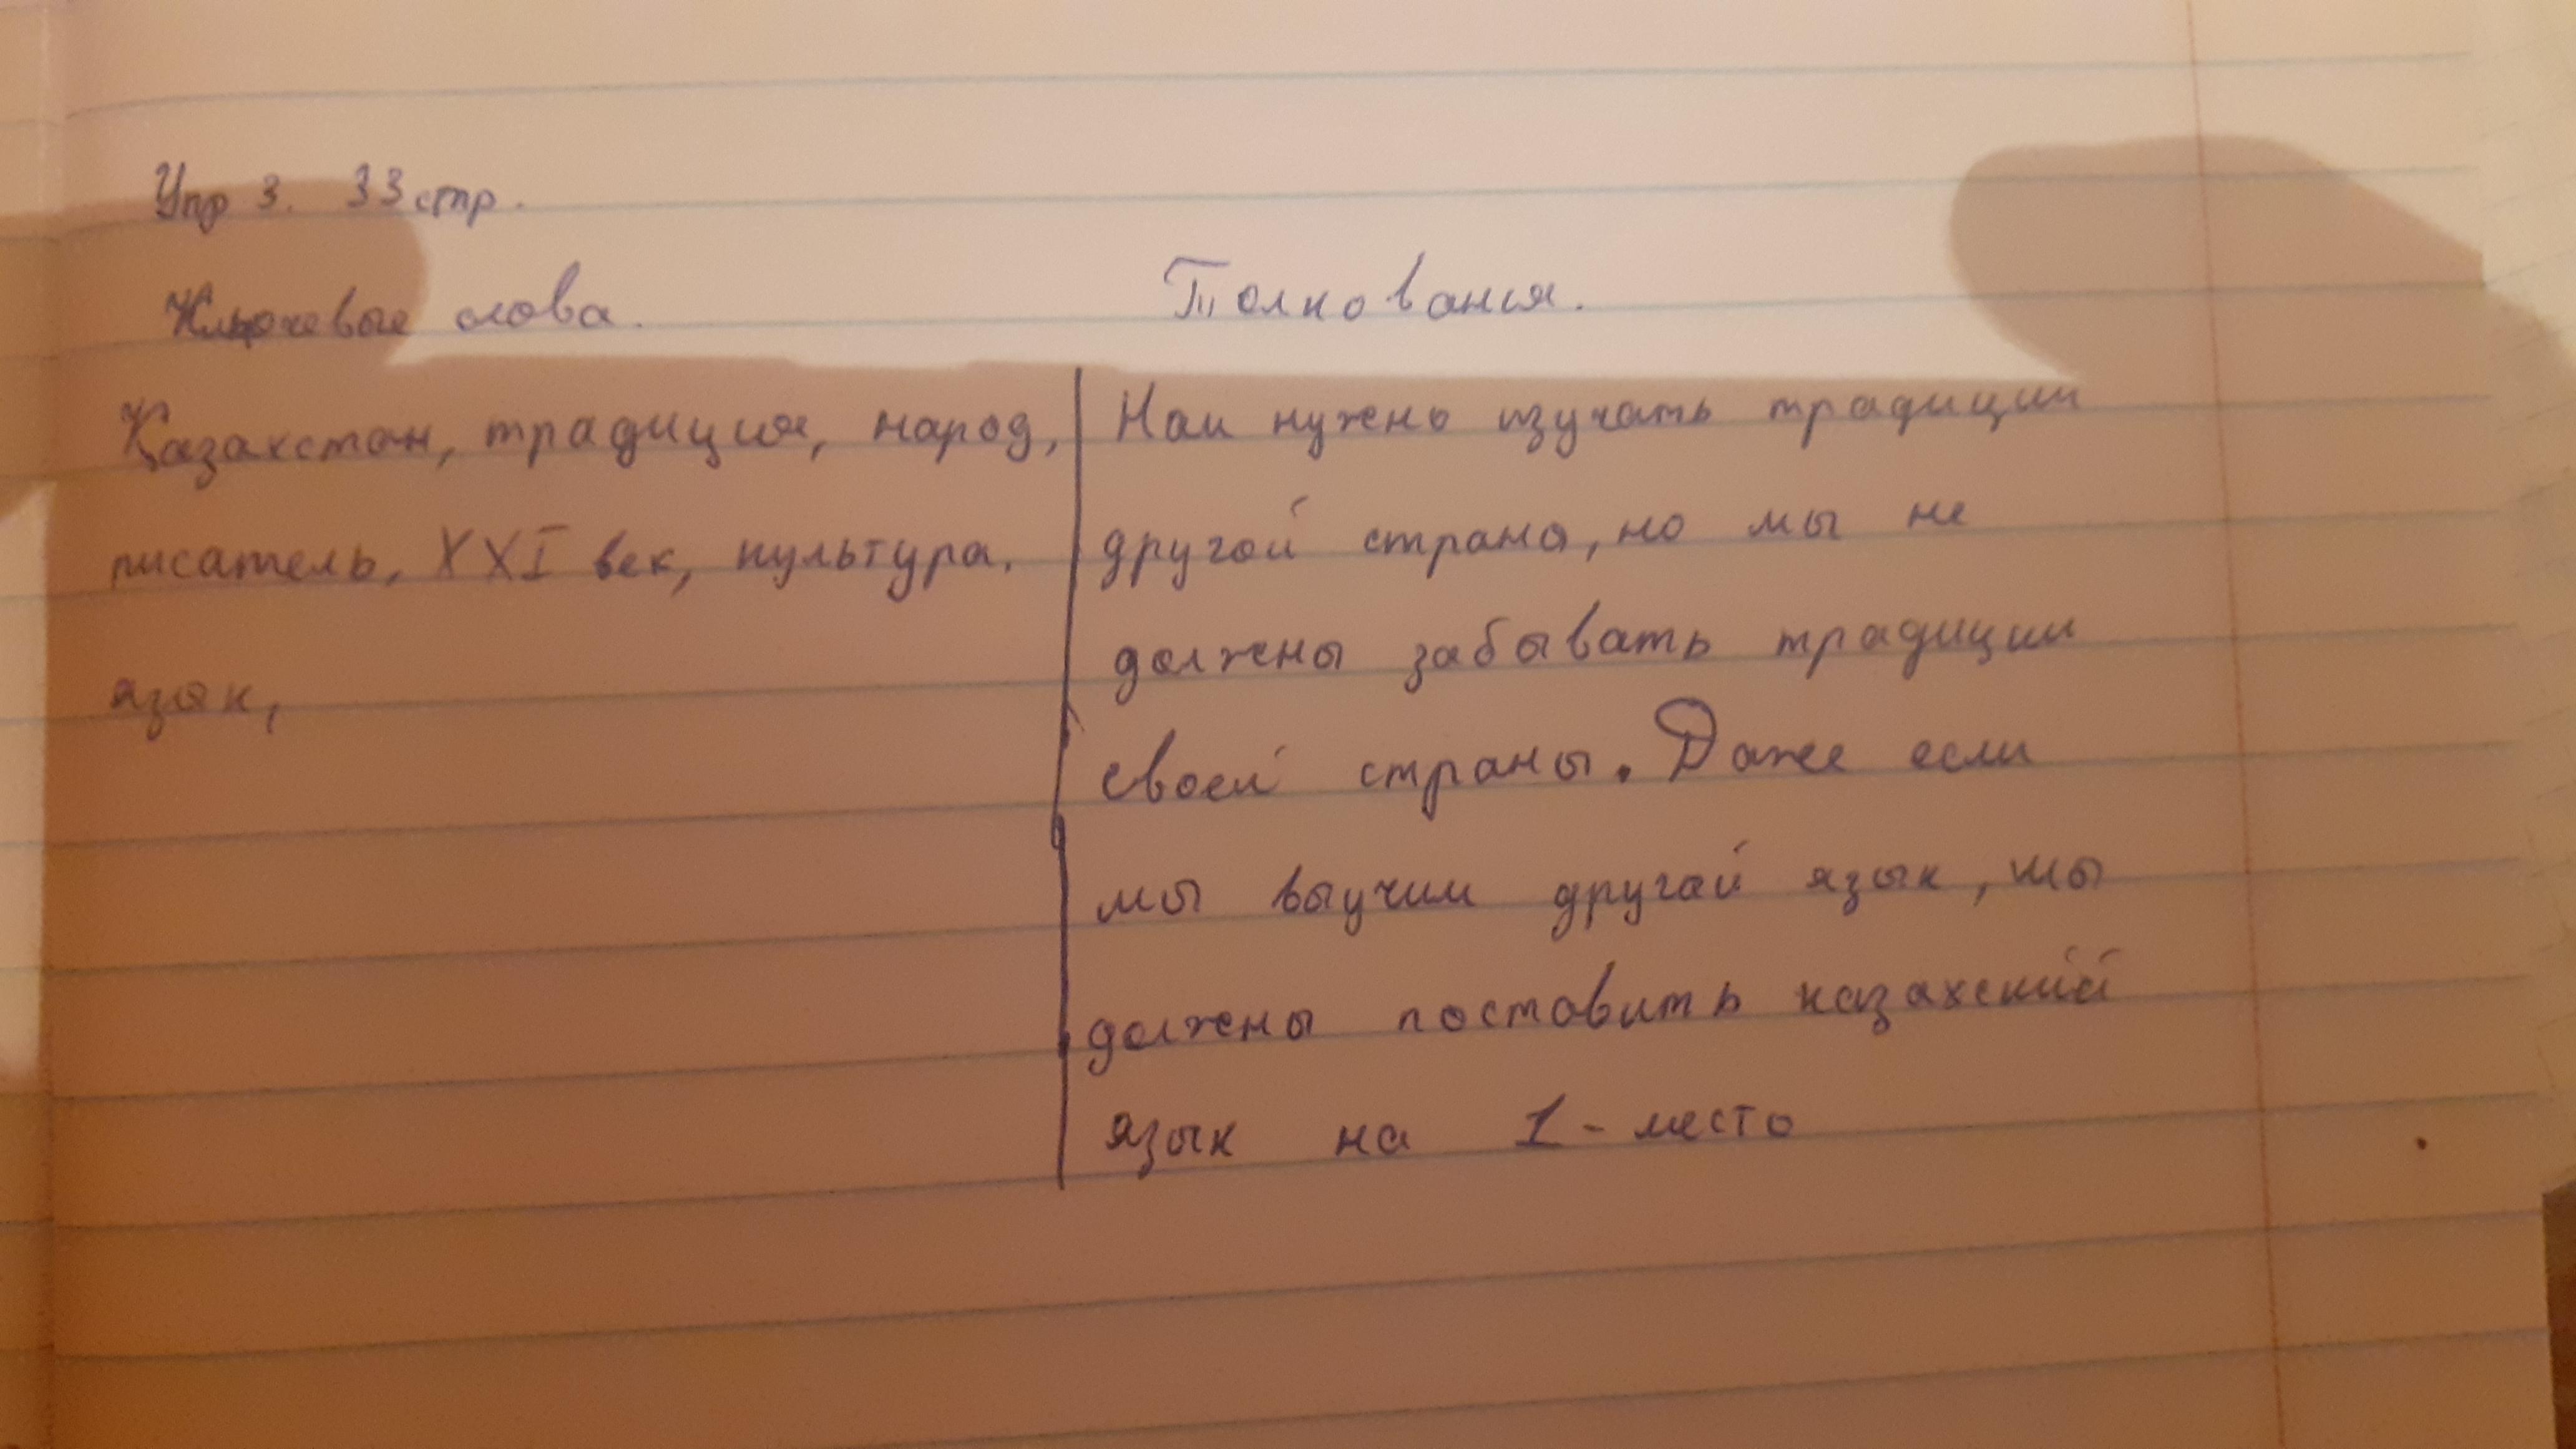 Упр 3. 33 стр.
Ключевые слова.
Толкования.
Қазахстан, традиция, народ,
писатель, XXI век, культура.
язык,
Нам нужно изучать традиции
другой страна, но мы не
должны забывать традиции
своей страны. Даже если
мы выучим другай язык, мы
должны поставить казахский
язык на 1 - место